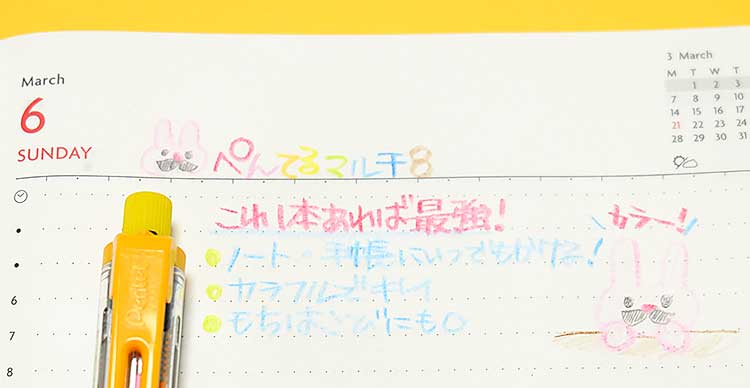 March
6
SUNDAY
3 March
M T W T
1 2 3
7 8 9 10
14 15 16 17
21 22 23 24
28 29 30 31
ぺんてるマルチ8
これ1本あれば最強!
カラー!!
ノート・手帳にいつでもかける!
カラフルでキレイ
もちはこびにも○
Pentel
6
7
8